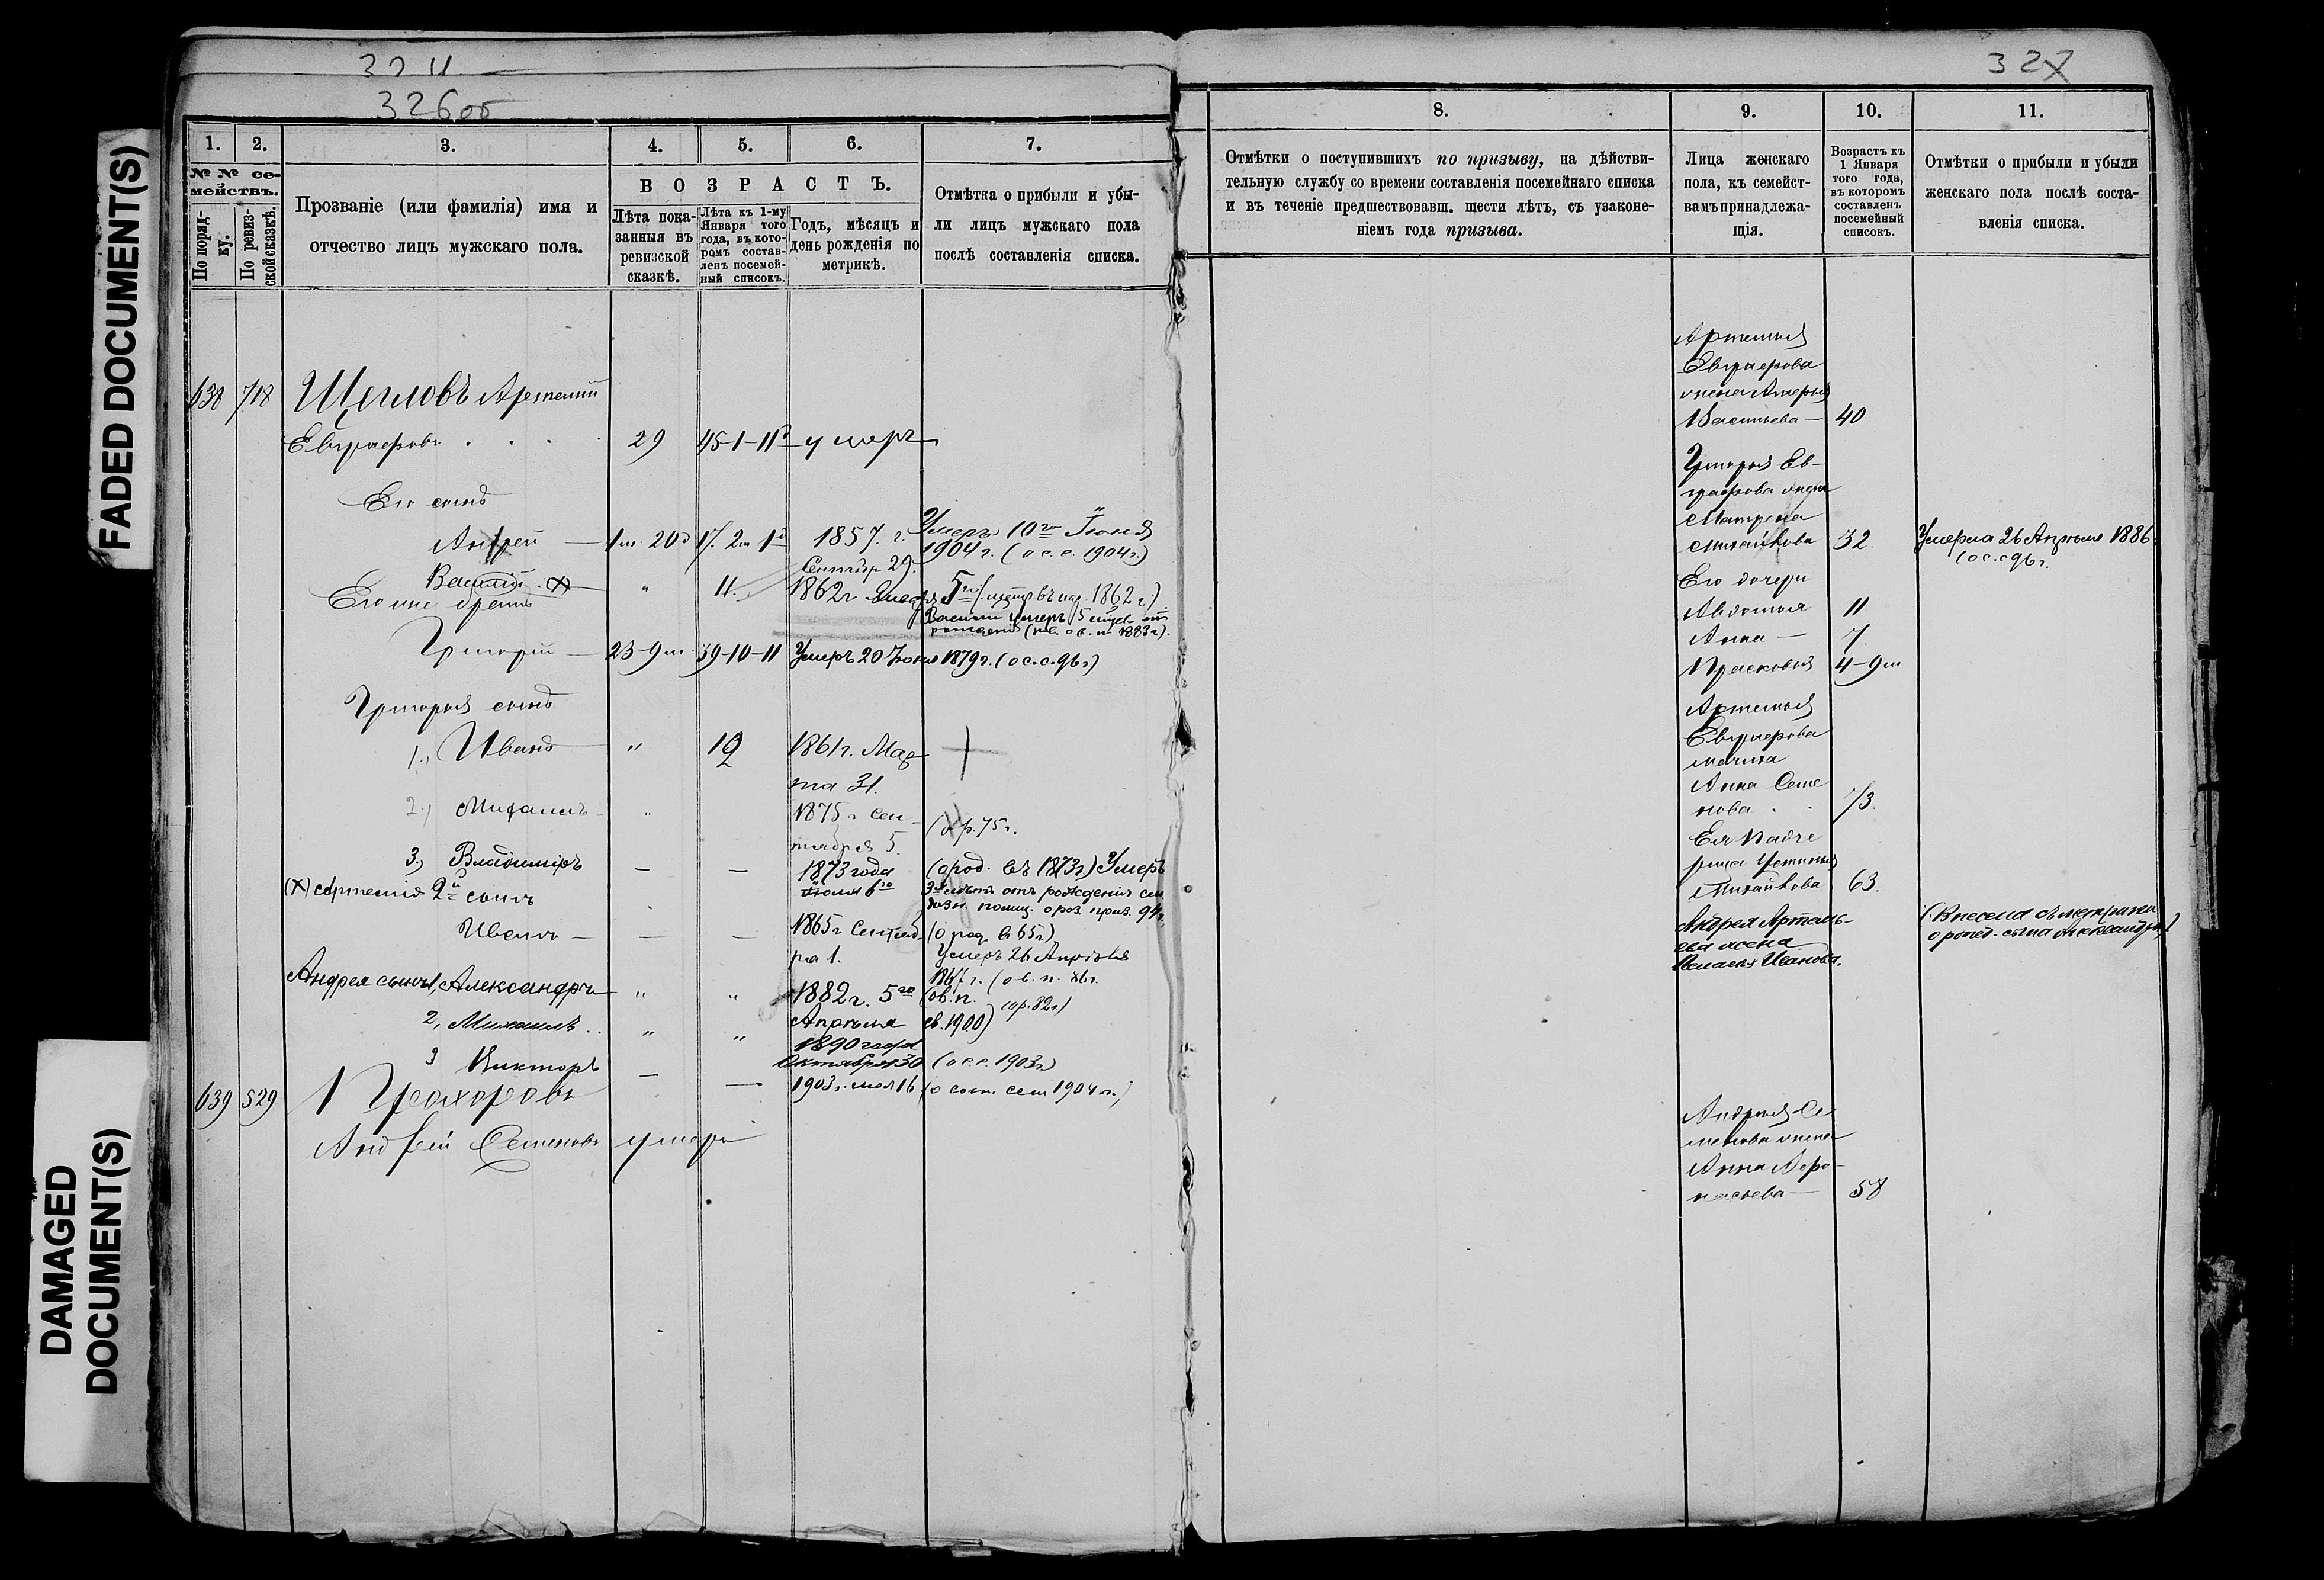 FADED DOCUMENT(S)
DAMAGED
DOCUMENT(S)
326об
1.
2.
3.
4.
5.
6.
7.
№ № се-
мействъ.
По поряд-
ку.
По ревиз-
ской сказкѣ.
Прозваніе (или фамилія) имя и
отчество лицъ мужскаго пола.
ВОЗРАСТЪ.
Лѣта пока-
занныя въ
ревизской
сказкѣ.
Лѣта къ 1-му
Января того
года, въ кото-
ромъ состав-
ленъ посемей-
ный списокъ.
Годъ, мѣсяцъ и
день рожденія по
метрикѣ.
Отмѣтка о прибыли и убы-
ли лицъ мужскаго пола
послѣ составленія списка.
638 718 Щегловъ Артемий
Евграфовъ 29 45-1-11 умеръ
Его сынъ
Андрей 1м 20д 17. 2м 1д 1857. г. Умеръ 10го Іюня
Сентябр 29. 1904 г. (о с. с. 1904 г.)
Василій (х) " 11. 1862 г. Января 5го
Василій умеръ
Его же братъ
Григорій 23-9м 39-10-11 Умеръ 20 Іюня 1879 г. (о с. с. 96 г.)
Григорья сынъ
1., Иванъ " 12 1861 г. Мар
та 31.
2., Михаилъ " 1875 г Сен-
тября 5. (о р. 75 г.
3., Владимиръ — — 1873 года (о род. въ 1873 г) Умеръ
Іюля 6го 3 лѣтъ отъ рожденія
(х) Артемія 2й сынъ
Иванъ — — — 1865 г Сентяб- (о род. въ 65 г)
ря 1. Умеръ 26 Апрѣля
1867 г.
Андрея сынъ 1, Александръ " " 1882 г. 5го (о в. п.
Апрѣля св. 1900) (о р. 82 г.)
2, Михаилъ " " 1890 года
Октября 30 (о с. с. 1903 г)
3 Викторъ — — 1903 г. мая 16 (о сост. сем 1904 г.)
639 529 Прохоровъ
Андрей Семеновъ умеръ
327
8.
9.
10.
11.
Отмѣтки о поступившихъ по призыву, на дѣйстви-
тельную службу со времени составленія посемейнаго списка
и въ теченіе предшествовавш. шести лѣтъ, съ узаконе-
ніемъ года призыва.
Лица женскаго
пола, къ семейст-
вамъ принадлежа-
щія.
Возрастъ къ
1 Января
того года,
въ которомъ
составленъ
посемейный
списокъ.
Отмѣтки о прибыли и убыли
женскаго пола послѣ соста-
вленія списка.
Артемья
Евграфова
жена
Васильева — 40
Григорья Ев-
графова жена
Матрена
Михайлова 32 Умерла 26 Апрѣля 1886
(о с. с 96 г.
Его дочери
Авдотья 11
Анна — 7.
Прасковья 4-9м
Артемья
Евграфова
мачиха
Анна Семе
нова . . 73.
Ея Падче
рица Устинья
Михайлова 63.
Андрея Артемь-
ева жена
Пелагея Иванова.
(Внесена съ метрики
о рожд. сына Александра)
Андрея Се
менова жена
Анна Афо-
насьева — 58